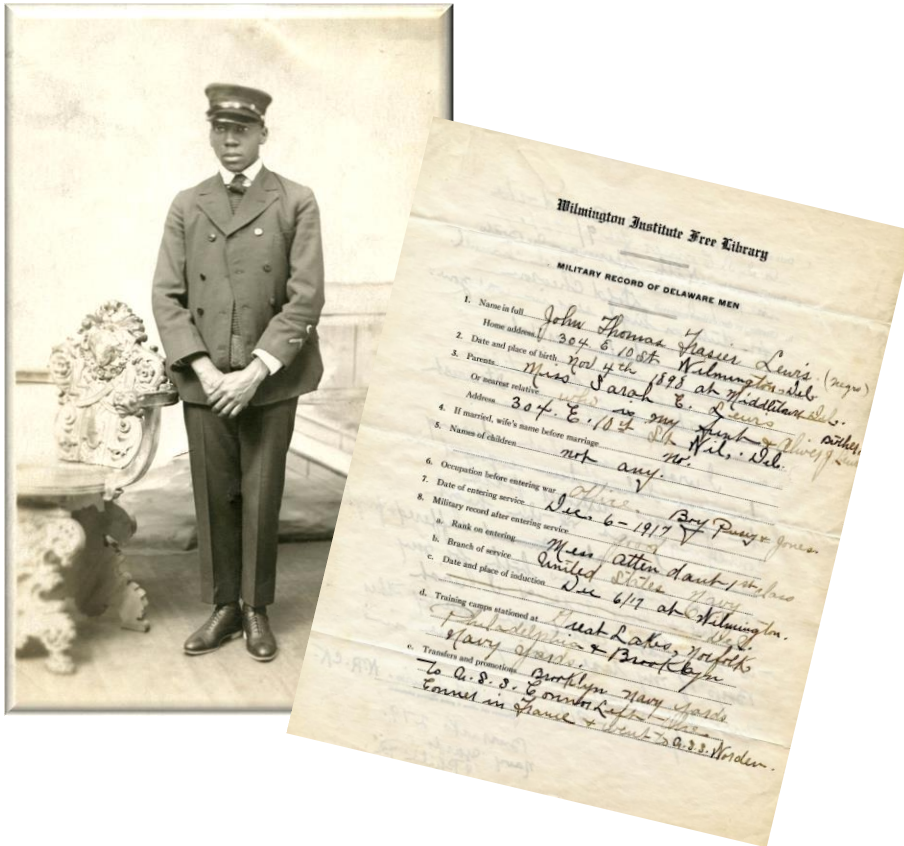 Wilmington Institute Free Library
MILITARY RECORD OF DELAWARE MEN
1. Name in full John Thomas Frasier Lewis. (negro)
Home address. 304 E 10 St Wilmington Del
2. Date and place of birth. Nov 4th 1898 at Middletown Del.
3. Parents Miss. Sarah E. Lewis
Or nearest relative who is my Aunt &
Address 304. E. 10 St Wil,. Del.
4. If married, wife's name before marriage no.
5. Names of children not any.
6. Occupation before entering war office. Boy Pusey & Jones.
7. Date of entering service Dec. 6 - 1917
8. Military record after entering service good
a. Rank on entering Mess attendant 1st class
b. Branch of service United States Navy
c. Date and place of induction Dec 6/17 at Wilmington.
Del.
d. Training camps stationed at Great Lakes, Norfolk
Philadelphia & Brooklyn
Navy yards.
e. Transfers and promotions Brooklyn Navy yards
to U.S.S. Conner Left the
Conner in France & went to U.S.S. Worden.